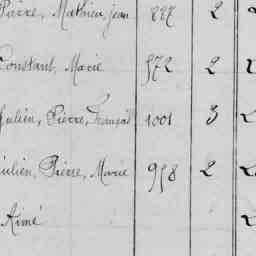 Pierre, Mathieu, jean 827 2
Constant, Marie 572 2
Julien, Pierre, François 1001 3
Julien, Pierre, Marie 958 2
Aimé